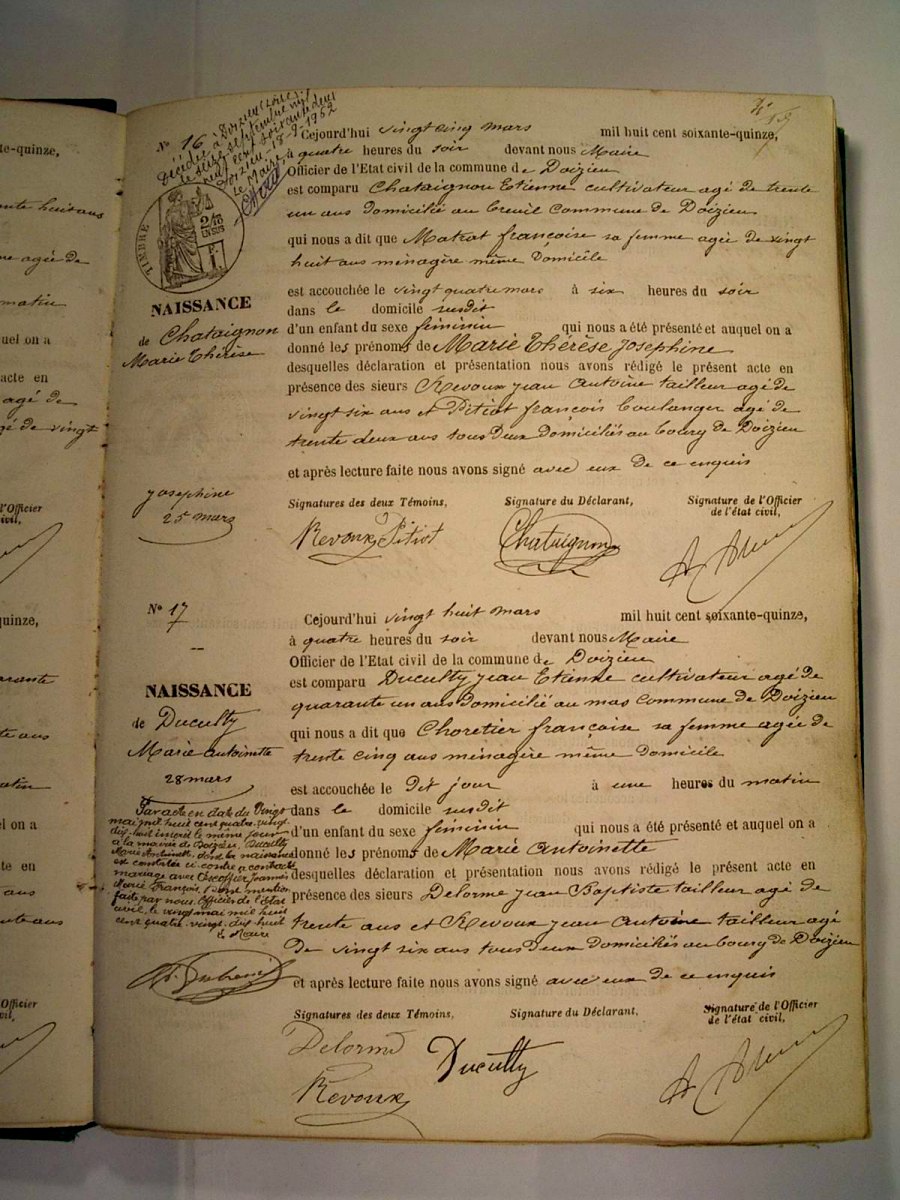 te-quinze,
ante huit ans
me agée de
matin
uel on a
acte en
agé de
gé de vingt
l'Officier
civil,
quinze,
arante
te ans
atin
el on a
te en
ans
ante ans
Officier
vil,
15
N° 16
Décédée à Doizieu (Loire)
le seize septembre mil
neuf cent cinquante deux
Doizieu - 18-9-1952
Le Maire,
TIMBRE
2/10
EN SUS
NAISSANCE
de Chataignon
Marie Thérèse
Josephine
25 mars
Cejourd'hui vingt cinq mars mil huit cent soixante-quinze,
à quatre heures du soir devant nous Maire
Officier de l'Etat civil de la commune de Doizieu
est comparu Chataignon Etienne cultivateur agé de trente
un ans domicilié au Creuil commune de Doizieu
qui nous a dit que Matrat françoise sa femme agée de vingt
huit ans ménagère même domicile
est accouchée le vingt quatre mars à six heures du soir
dans le domicile susdit
d'un enfant du sexe féminin qui nous a été présenté et auquel on a
donné les prénoms de Marie Thérèse Josephine
desquelles déclaration et présentation nous avons rédigé le présent acte en
présence des sieurs Revoux jean Antoine tailleur agé de
vingt six ans et Pitiot françois boulanger agé de
trente deux ans tous deux domiciliés au bourg de Doizieu
et après lecture faite nous avons signé avec eux de ce enquis
Signatures des deux Témoins, Signature du Déclarant, Signature de l'Officier
de l'état civil,
Revoux Pitiot Chataignon
N° 17
NAISSANCE
de Ducully
Marie antoinette
28 mars
Par acte en date du Vingt
mai mil huit cent quatre-vingt
dix-huit inscrit le même jour
à la mairie de Doizieu, Ducully
Marie Antoinette, dont la naissance
est constatée ci-contre a contracté
mariage avec Escoffier Joannès
Marie François, Dont mention
faite par nous Officier de l'état
civil, le vingt mai mil huit
cent quatre-vingt-dix huit
Le Maire
Cejourd'hui vingt huit mars mil huit cent soixante-quinze,
à quatre heures du soir devant nous Maire
Officier de l'Etat civil de la commune de Doizieu
est comparu Ducully jean Etienne cultivateur agé de
quarante un ans domicilié au mas commune de Doizieu
qui nous a dit que Choretier françoise sa femme agée de
trente cinq ans ménagère même domicile
est accouchée le Dit jour à une heures du matin
dans le domicile susdit
d'un enfant du sexe féminin qui nous a été présenté et auquel on a
donné les prénoms de Marie Antoinette
desquelles déclaration et présentation nous avons rédigé le présent acte en
présence des sieurs Delorme jean Baptiste tailleur agé de
trente ans et Revoux jean Antoine tailleur agé
de vingt six ans tous deux domiciliés au bourg de Doizieu
et après lecture faite nous avons signé avec eux de ce enquis
Signatures des deux Témoins, Signature du Déclarant, Signature de l'Officier
de l'état civil,
Delorme Ducully
Revoux